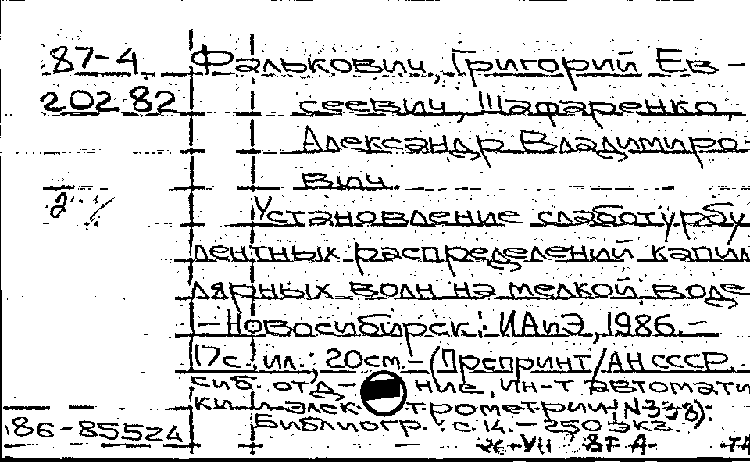 87-4 Фалькович, Григорий Ев-
202 82 сеевич, Шафаренко,
Александр Владимиро-
вич.
2 Установление слаботурбу
лентных распределений капил
лярных волн на мелкой воде
-Новосибирск: ИАиЭ, 1986.-
17с. ил.; 20см.-(Препринт/АН СССР.
сиб. отд-ние, ин-т автомати
ки и элек трометрии; N338).
86-85524 Библиогр.: с.14.- 250 экз.